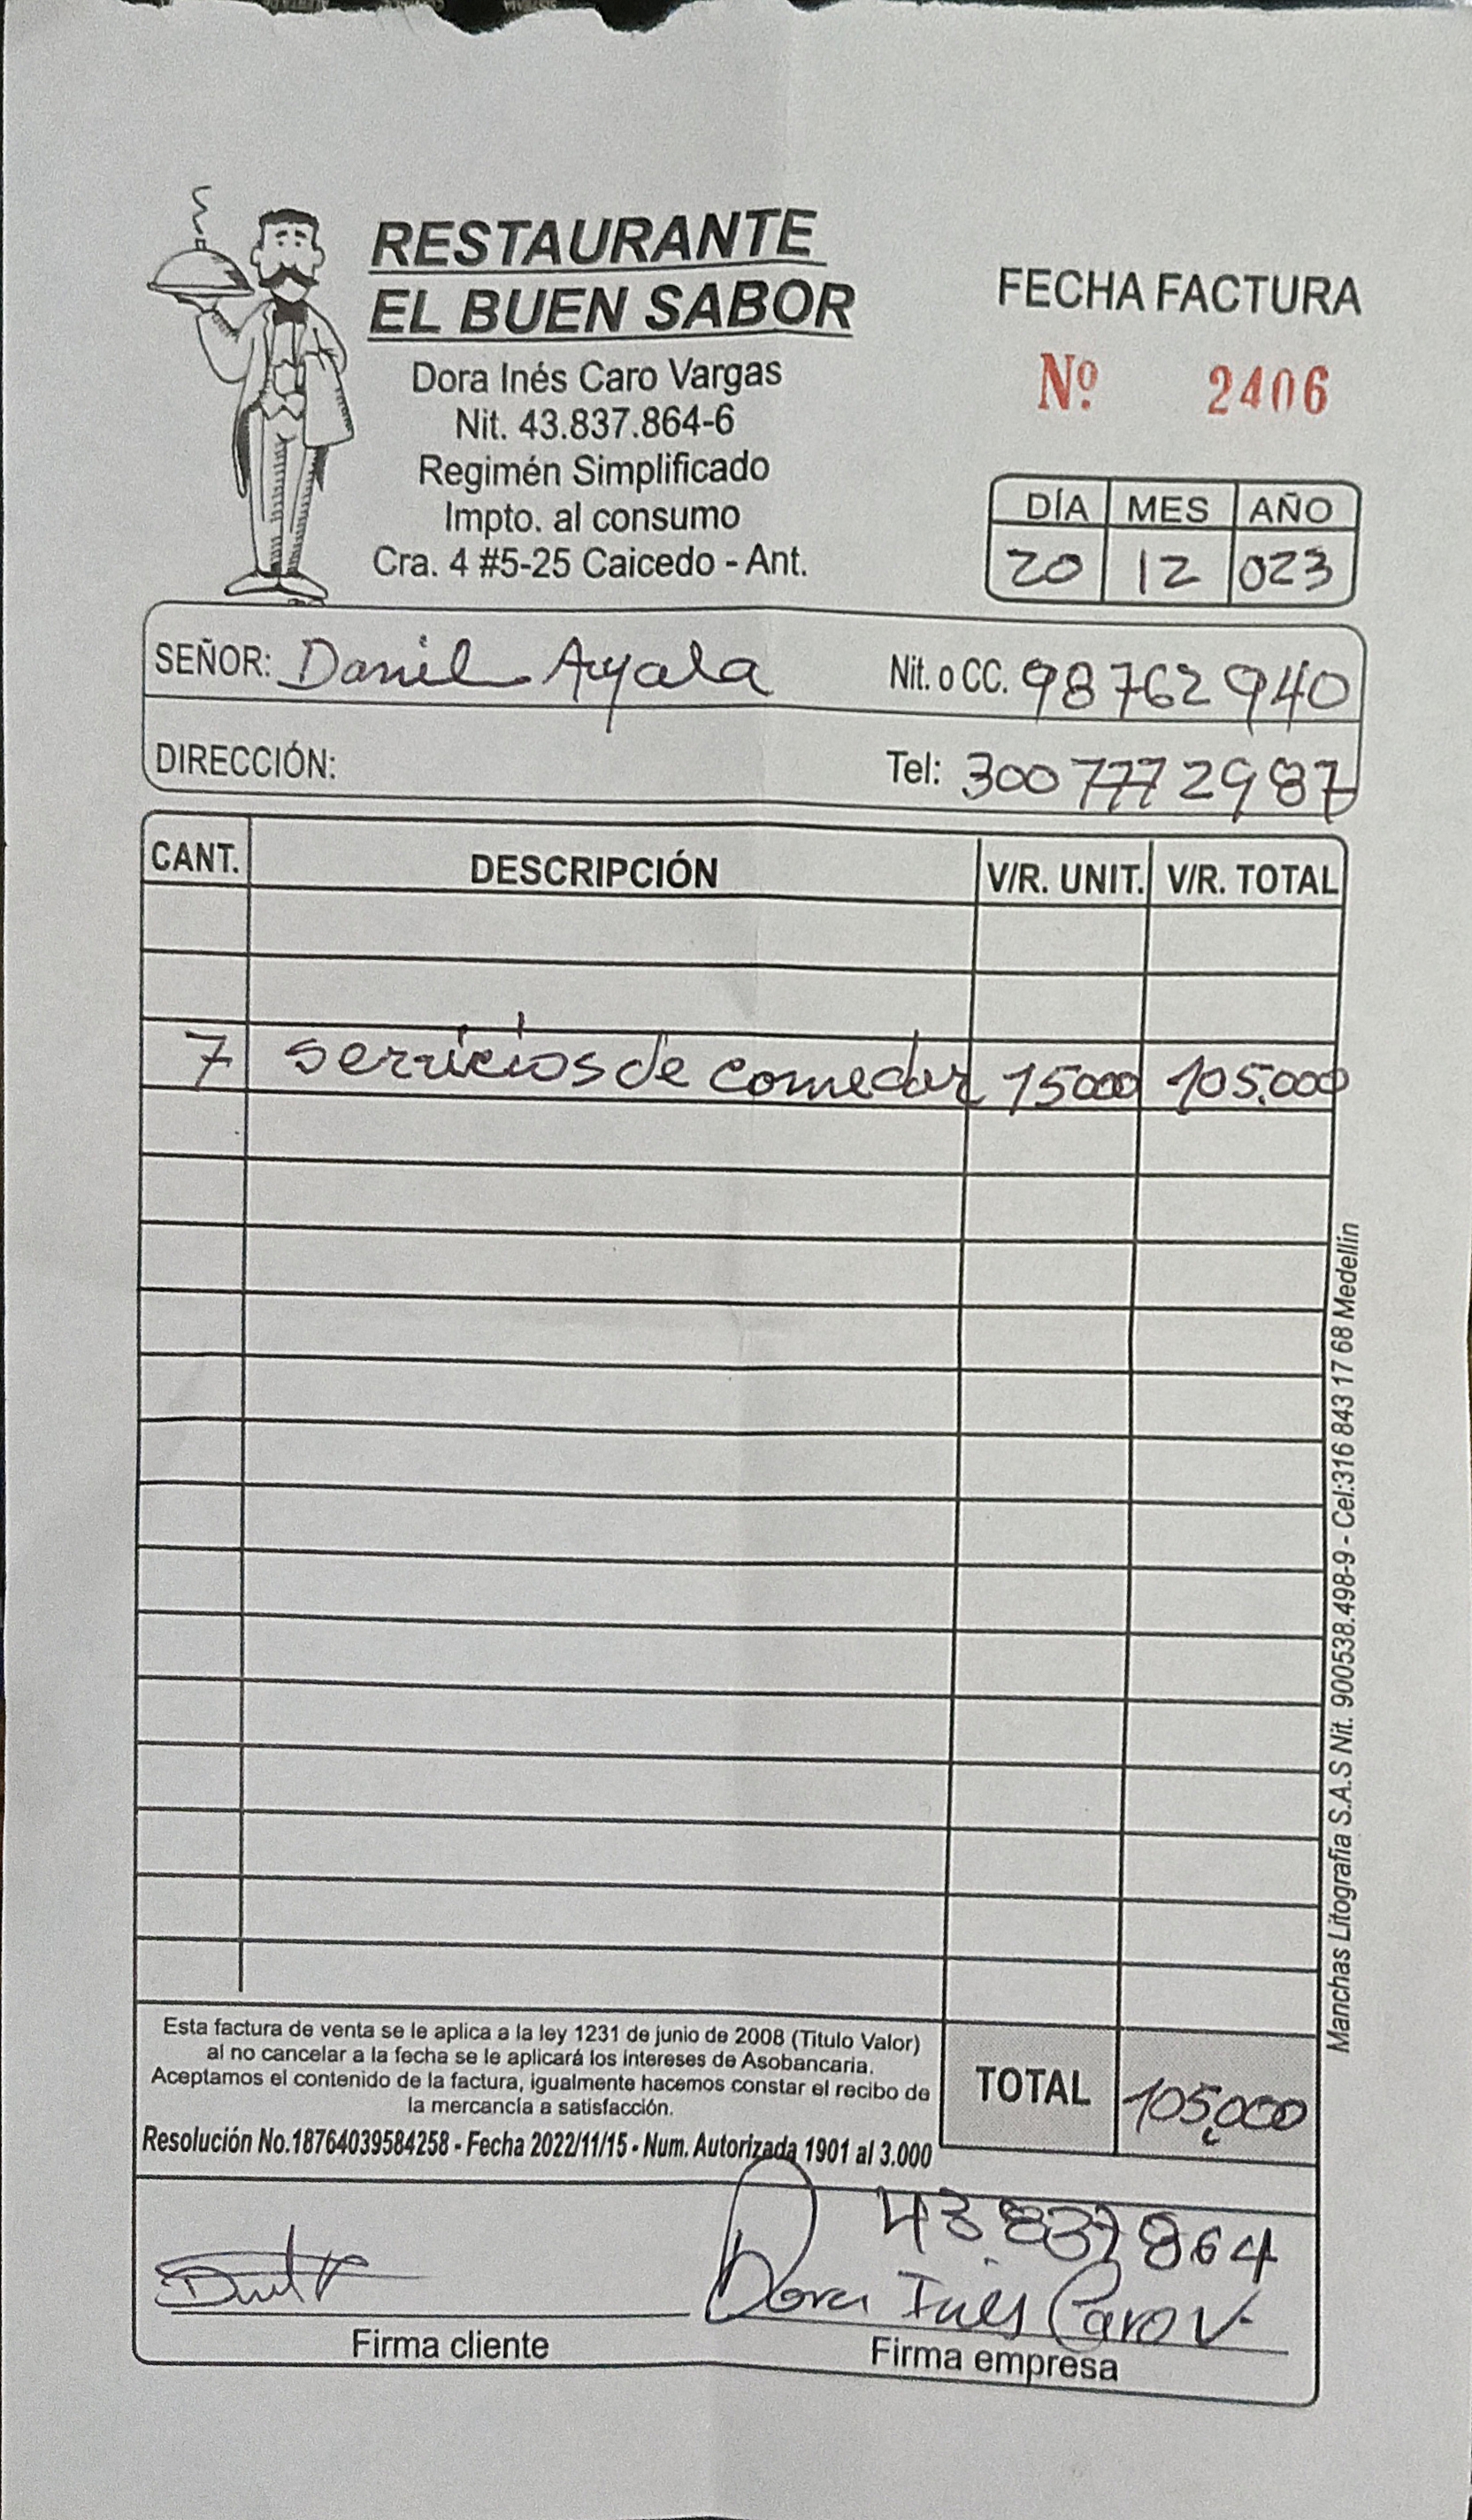 RESTAURANTE
EL BUEN SABOR
Dora Inés Caro Vargas
Nit. 43.837.864-6
Regimén Simplificado
Impto. al consumo
Cra. 4 #5-25 Caicedo - Ant.
FECHA FACTURA
Nº 2406
DÍA MES AÑO
20 12 023
SEÑOR: Daniel Ayala Nit. o CC. 98762940
DIRECCIÓN: Tel: 300 777 2987
CANT. DESCRIPCIÓN V/R. UNIT. V/R. TOTAL
7 servicios de comedor 15000 105.000
Esta factura de venta se le aplica a la ley 1231 de junio de 2008 (Titulo Valor)
al no cancelar a la fecha se le aplicará los intereses de Asobancaria.
Aceptamos el contenido de la factura, igualmente hacemos constar el recibo de
la mercancía a satisfacción.
Resolución No.18764039584258 - Fecha 2022/11/15 - Num. Autorizada 1901 al 3.000
TOTAL 105,000
43.837864
Dora Inés Caro V.
Firma cliente Firma empresa
Manchas Litografía S.A.S Nit. 900538.498-9 - Cel:316 843 17 68 Medellín